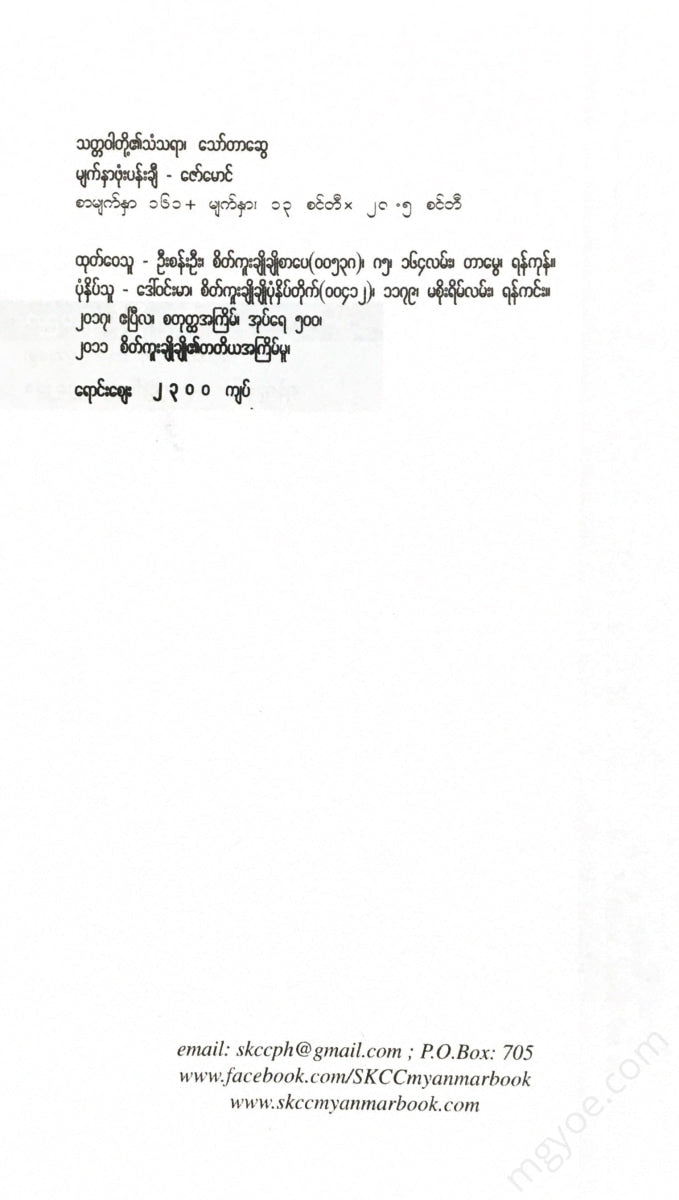 သတ္တဝါတို့၏သံသရာ၊ သော်တာဆွေ
မျက်နှာဖုံးပန်းချီ - ဇော်မောင်
စာမျက်နှာ ၁၆၁+ မျက်နှာ၊ ၁၃ စင်တီ× ၂၀.၅ စင်တီ
ထုတ်ဝေသူ - ဦးစန်းဦး၊ စိတ်ကူးချိုချိုစာပေ(၀၀၅၃ဂ)၊ ဂ၅၊ ၁၆၄လမ်း၊ တာမွေ၊ ရန်ကုန်။
ပုံနှိပ်သူ - ဒေါ်ဝင်းမာ၊ စိတ်ကူးချိုချိုပုံနှိပ်တိုက်(၀၀၄၁၂)၊ ၁၁၇၉၊ မစိုးရိမ်လမ်း၊ ရန်ကင်း။
၂၀၁၇၊ ဧပြီလ၊ စတုတ္ထအကြိမ်၊ အုပ်ရေ ၅၀၀၊
၂၀၁၁ စိတ်ကူးချိုချို၏တတိယအကြိမ်မူ၊
ရောင်းစျေး ၂၃၀၀ ကျပ်
email: skccph@gmail.com ; P.O.Box: 705
www.facebook.com/SKCCmyanmarbook
www.skccmyanmarbook.com
mgyoe.com